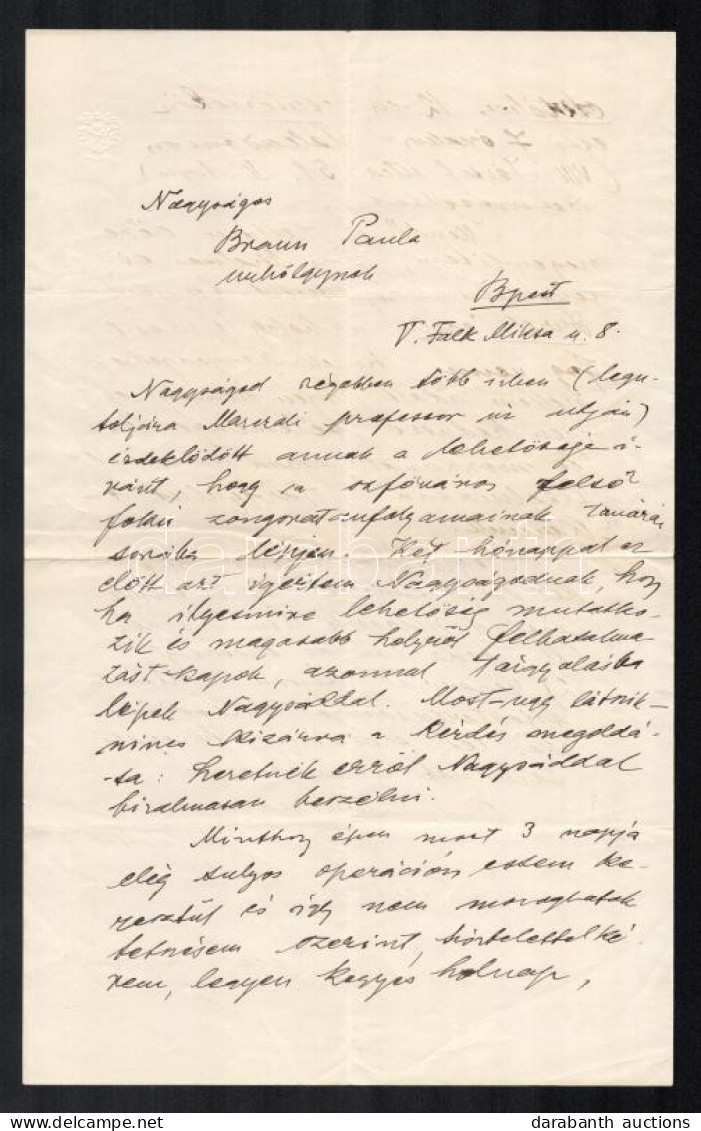 Nagyságos
Braun Paula
urhölgynek
Bpest
V. Falk Miksa u. 8.
Nagyságod régebben több ízben (legu-
toljára Marcsali professor úr utján)
érdeklődött annak a lehetősége i-
ránt, hogy a szfőváros felső
fokú zongoratanfolyamainak tanárai
sorába lépjen. Két hónappal ez
előtt azt igértem Nagyságodnak, hogy
ha ilyesmire lehetőség mutatko-
zik és magasabb helyről felhatalma
zást kapok, azonnal tárgyalásba
lépek Nagysáddal. Most-ugy látszik-
nincs kizárva a kérdés megoldá-
-sa: szeretnék erről Nagysáddal
bizalmasan beszélni.
Minthogy épen most 3 napja
elég sulyos operáción estem ke-
resztül és igy nem mozoghatok
tetszésem szerint, tisztelettel ké
rem, legyen kegyes holnap,
darabanth
darabanth auctions